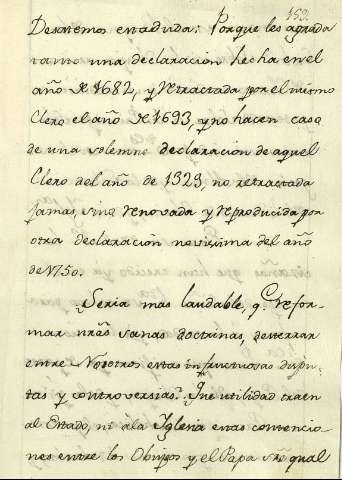 159.
Desatemos esta duda: Porque les agrada
tanto una declaracion hecha en el
año de 1682, y retractada por el mismo
Clero el año de 1693, y no hacen caso
de una solemne declaracion de aquel
Clero del año de 1329, no retractada
jamas, sino renovada y reproducida por
otra declaracion novisima del año
de 1750.
Seria mas laudable, q.e refor-
mar nrãs sanas doctrinas, desterrar
entre Nosotros estas infructuosas dispu-
tas y controversias. Que utilidad traen
al Estado, ni a la Iglesia esas contencio-
nes entre los Obispos y el Papa sr̃e qual